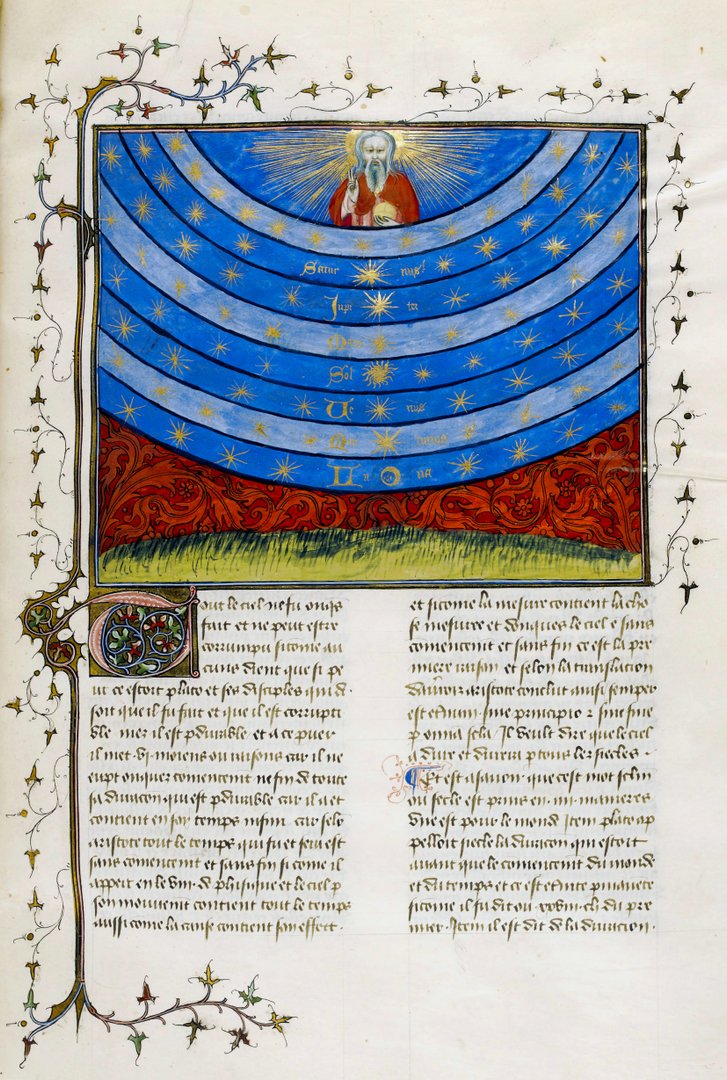 Satur nus
Jupi ter
Mars
Sol
Ve nus
Mer curius
Lu na
Tout le ciel ne fu onq̄s
fait et ne peut estre
corrumpu sicome au
cuns dient que si pe
ut ce estoit plato et ses disciples qui di
soit que il fu fait et que il est corrupti
ble mes il est pdurable et a ce puer
il met .vi. moiens ou raisons car il ne
eust onques comencemt ne fin de toute
sa duracon qui est pdurable car il a et
contient en soy temps infini car selō
aristote tout le temps qui fu et sera est
sans comencemt et sans fin si come il
appert en le viii. de phisique et le ciel p
son mouvemt contient tout le temps
aussi come la cause contient son effect.
et sicome la mesure contient la cho
se mesuree et donques le ciel e sans
comencemt et sans fin ce est la pre
miere raison et selon la translacion
aristote conclut ausi semper
est et num sine principio 2 sine fine
p omnia scla. Il veult dire que le ciel
a dure et durera p tous les siecles.
Et est asavoir que cest mot sclm
ou secle est prins en .iiii. manieres
une est pour le monde Item plato ap
pelloit siecle la duracon qui estoit
avant que le comencemt du monde
et du temps et ce est etnite pmanēte
sicome il fu dit ou .xxviii. ch. du pre
mier. Item il est dit de la duracion.